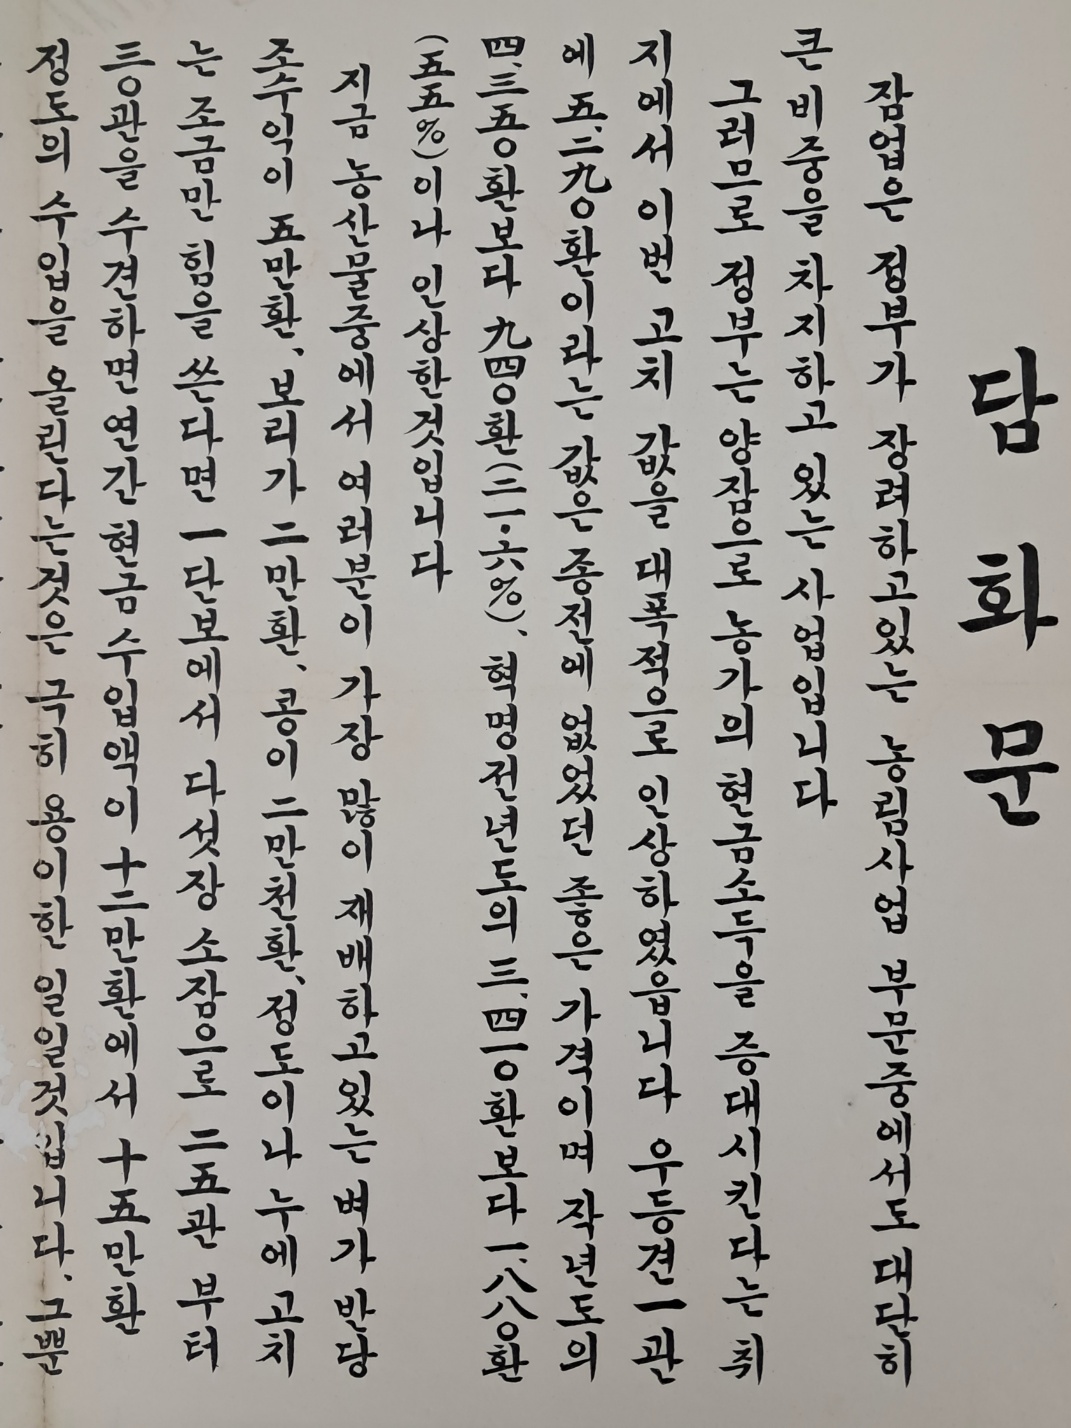 담화문
잠업은 정부가 장려하고있는 농림사업 부문중에서도 대단히
큰 비중을 차지하고 있는 사업입니다
그러므로 정부는 양잠으로 농가의 현금소득을 증대시킨다는 취
지에서 이번 고치 값을 대폭적으로 인상하였읍니다 우등견 一관
에 五、二九〇환이라는 값은 종전에 없었던 좋은 가격이며 작년도의
四、三五〇환보다 九四〇환(二一·六%)、혁명전년도의 三、四一〇환보다 一、八八〇환
(五五%)이나 인상한것입니다
지금 농산물중에서 여러분이 가장 많이 재배하고있는 벼가 반당
조수익이 五만환、보리가 二만환、콩이 二만천환、정도이나 누에고치
는 조금만 힘을 쓴다면 一단보에서 다섯장 소잠으로 二五관 부터
三〇관을 수견하면 연간 현금 수입액이 十二만환에서 十五만환
정도의 수입을 올린다는것은 극히 용이한 일일것입니다、그뿐